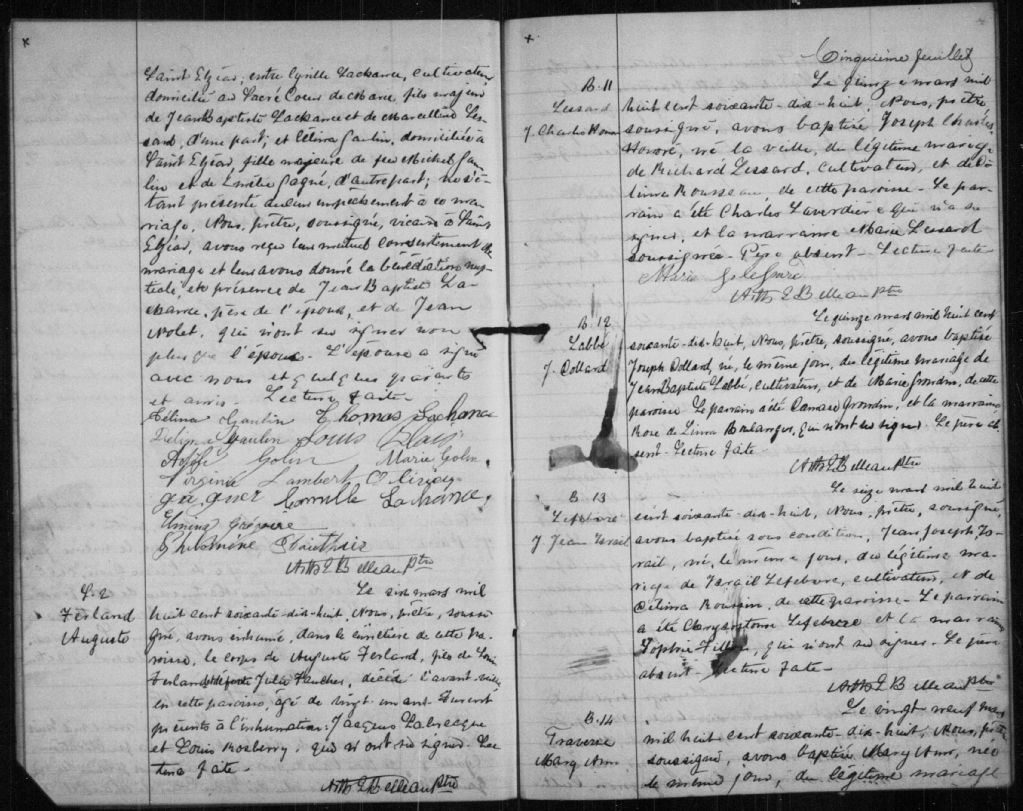 Saint Elzéar; entre Cyrille Lachance, cultivateur
domicilié au Sacré Coeur de Marie, fils majeur
de Jean Baptiste Lachance et de Marcelline Les-
sard, d'une part; et Célina Gaulin, domiciliée à
Saint Elzéar, fille majeure de feu Michel Gau-
lin et de Emélie Gagné, d'autre part; ne s'é-
tant présenté aucun empêchement à ce ma-
riage, Nous, prêtre, soussigné, vicaire à Saint
Elzéar, avons reçu leur mutuel consentement de
mariage et leur avons donné la bénédiction nup-
tiale, en présence de Jean Baptiste La-
chance, père de l'époux, et de Jean
Nolet, qui n'ont su signer non
plus que l'époux. L'épouse a signé
avec nous et quelques parents
et amis. Lecture faite.
Célina Gaulin Thomas Lachance
Gaulin Louis
Golin Marie Golin
Virginie Lambert
Camille Lachance
Grégoire
Philomène
Arth. E Belleau Ptre
S. 2
Ferland
Auguste
Le six mars mil
huit cent soixante-dix-huit, Nous, prêtre, soussi-
gné, avons inhumé, dans le cimetière de cette pa-
roisse, le corps de Auguste Ferland, fils de Louis
Ferland et de feu Julie Faucher, décédé l'avant veille
en cette paroisse, âgé de vingt un ans. Furent
présents à l'inhumation: Jacques Labrecque
et Louis Rosberry, qui n'ont su signer. Lec-
ture faite.
Arth. E Belleau Ptre
Cinquième feuillet
B. 11
Lessard
J. Charles Honoré
Le quinze mars mil
huit cent soixante-dix-huit, Nous, prêtre
soussigné, avons baptisé Joseph Charles
Honoré, né la veille, du légitime mariage
de Richard Lessard, cultivateur, et de Cé-
lina Rousseau de cette paroisse. Le par-
rain a été Charles Laverdière qui n'a su
signer, et la marraine Marie Lessard
soussignée. Père absent. Lecture faite
Marie
Arth. E Belleau Ptre
B. 12
Labbé
J. Dollard
Le quinze mars mil huit cent
soixante-dix-huit, Nous, prêtre, soussigné, avons baptisé
Joseph Dollard, né, le même jour, du légitime mariage de
Jean Baptiste Labbé, cultivateur, et de Marie Grondin, de cette
paroisse. Le parrain a été Damase Grondin, et la marraine
Rose de Lima Boulanger, qui n'ont su signer. Le père ab-
sent. Lecture faite.
Arth. E Belleau Ptre
B. 13
Lefebvre
J. Jean Israel
Le seize mars mil huit
cent soixante-dix-huit, Nous, prêtre, soussigné,
avons baptisé sous condition, Jean Joseph Is-
rail, né, le même jour, du légitime ma-
riage de Israil Lefebvre, cultivateur, et de
Célina Roussin, de cette paroisse. Le parrain
a été Chrysostome Lefebvre et la marraine
Sophie qui n'ont su signer. Le père
absent. Lecture faite.
Arth. E Belleau Ptre
B. 14
Traverse
Mary Ann
Le vingt neuf mars
mil huit cent soixante-dix-huit, Nous, prêtre
soussigné, avons baptisé Mary Ann, née
le même jour, du légitime mariage